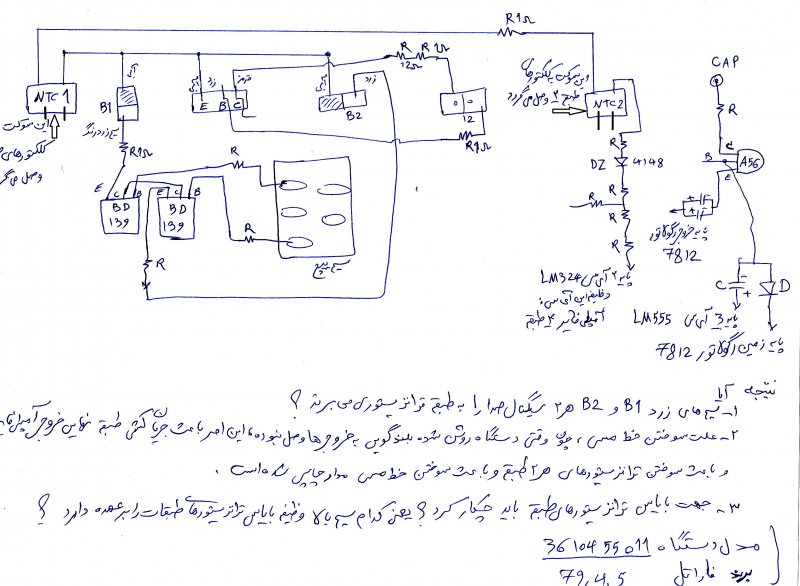 R1Ω
NTC1
آبی
B1
سیم زرد رنگ
این سوکت
R1Ω
آبی
زرد
قرمز
E B C
آبی
زرد
B2
R
12Ω
R 1Ω
12
R1Ω
این سوکت به کلکتورهای
طبقه 2 وصل می گردد
NTC2
CAP
R
C
B
E
A56
R
DZ 4148
R
R
R
E C B
BD
139
E C B
BD
139
R
R
R
پایه خروجی رگولاتور
7812
C
D
پایه 2 آی سی LM324
وظیفه این آی سی:
آمپلی فایر 2 طبقه
پایه 3 آی سی LM555
پایه زمین رگولاتور 7812
نتیجه آیا
1- سیم های زرد B1 و B2 هر 2 سیگنال صدا را به طبقه ترانزیستوری می برند ؟
2- علت سوختن خط مسی ، چون وقتی دستگاه روشن شده بلندگویی به خروجی ها وصل نبوده، این امر باعث جریان کشی طبقه نهایی خروجی
و باعث سوختن ترانزیستورهای هر 2 طبقه و باعث سوختن خط مسی مدار چاپی شده است .
3- جهت بایاس ترانزیستورهای طبقه باید چکار کرد ؟ یعنی کدام سیم بالا وظیفه بایاس ترانزیستورهای طبقات را بر عهده دارد ؟
مدل دستگاه 36104 55 011
برند فاراتل 79,4,5